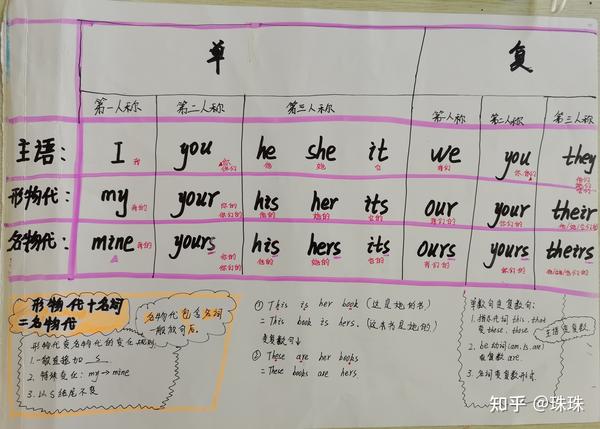 单 复
第一人称 第二人称 第三人称 第一人称 第二人称 第三人称
主语: I 我 you 你 你们 he 他 she 她 it 它 we 我们 you 你们 they
形物代: my 我的 your 你的 你们的 his 他的 her 她的 its 它的 our 我们的 your 你们的 their
名物代: mine 我的 yours 你的 你们的 his 他的 hers 她的 its 它的 ours 我们的 yours 你们的 theirs
形物代+名词
=名物代
名物代包含名词
一般放句后。
形物代变名物代的变化规则
1.一般直接加 s
2.特殊变化: my→mine
3.以s结尾不变
① This is her book (这是她的书)
= This book is hers. (这本书是她的)
变复数句↓
② These are her books
= These books are hers.
单数句变复数句:
1.指示代词 this, that
变 these, those
主语变复数
2. be动词(am, is, are)
变复数 are.
3.名词变复数形式.
知乎 @珠珠